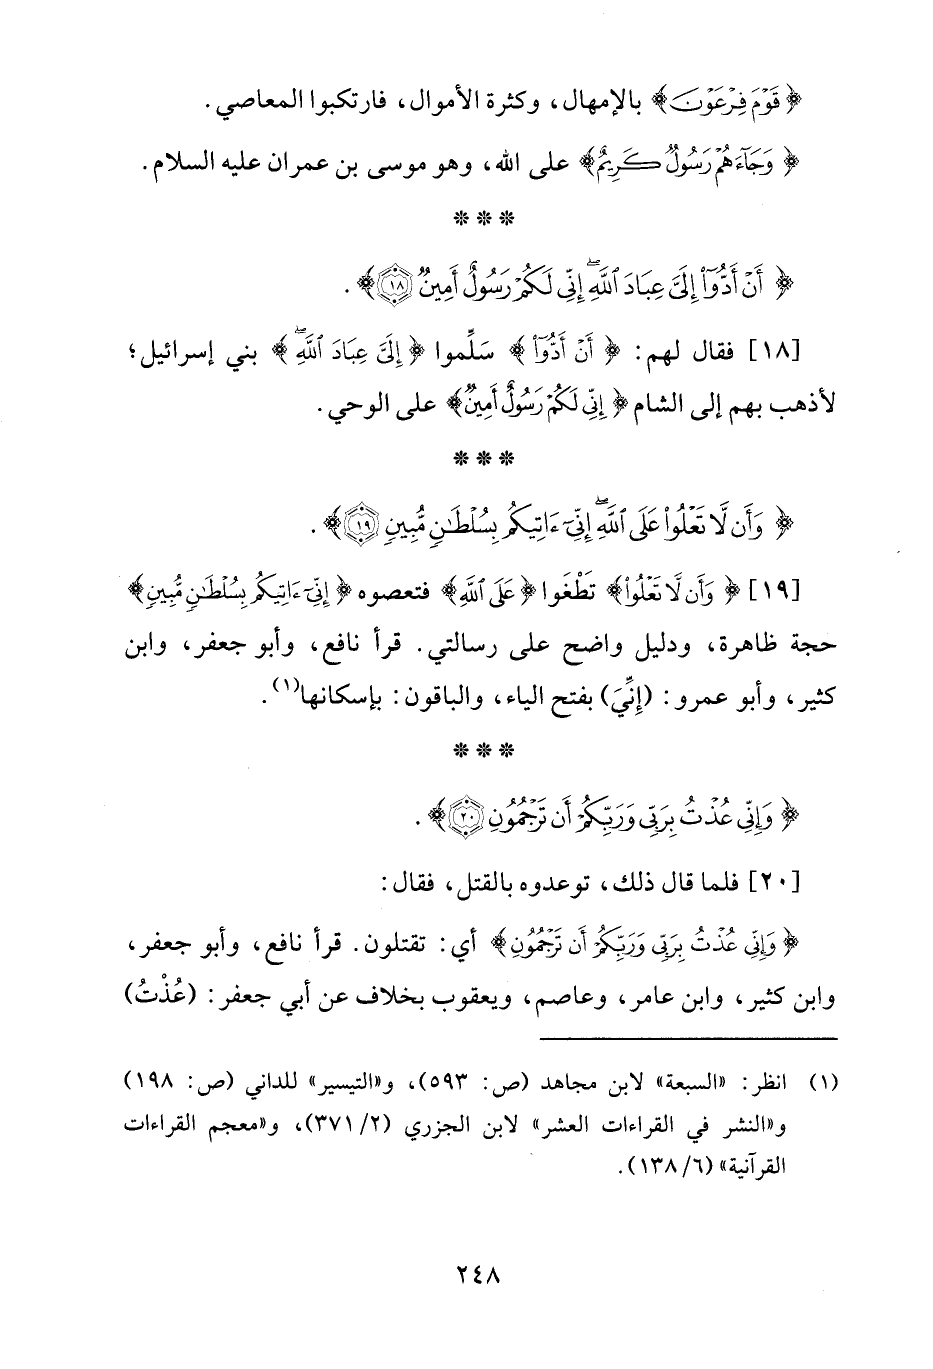 ﴿ قَوْمَ فِرْعَوْنَ﴾ بالإمهال، وكثرة الأموال، فارتكبوا المعاصي.
﴿ وَجَآءَهُمْ رَسُولٌ كَرِيمٌ﴾ على الله، وهو موسى بن عمران عليه السلام.
* * *
﴿ أَنْ أَدُّوٓا۟ إِلَىَّ عِبَادَ ٱللَّهِۖ إِنِّى لَكُمْ رَسُولٌ أَمِينٌ ١٨﴾.
[١٨] فقال لهم: ﴿ أَنْ أَدُّوٓا۟ ﴾ سَلِّموا ﴿ إِلَىَّ عِبَادَ ٱللَّهِۖ ﴾ بني إسرائيل؛
لأذهب بهم إلى الشام ﴿ إِنِّى لَكُمْ رَسُولٌ أَمِينٌ﴾ على الوحي.
* * *
﴿ وَأَن لَّا تَعْلُوا۟ عَلَى ٱللَّهِۖ إِنِّىٓ ءَاتِيكُم بِسُلْطَٰنٍ مُّبِينٍ ١٩﴾.
[١٩] ﴿ وَأَن لَّا تَعْلُوا۟﴾ تَطْغَوا ﴿عَلَى ٱللَّهِ﴾ فتعصوه ﴿ إِنِّىٓ ءَاتِيكُم بِسُلْطَٰنٍ مُّبِينٍ﴾
حجة ظاهرة، ودليل واضح على رسالتي. قرأ نافع، وأبو جعفر، وابن
كثير، وأبو عمرو: (إِنِّيَ) بفتح الياء، والباقون: بإسكانها(١).
* * *
﴿ وَإِنِّى عُذْتُ بِرَبِّى وَرَبِّكُمْ أَن تَرْجُمُونِ ٢٠﴾.
[٢٠] فلما قال ذلك، توعدوه بالقتل، فقال:
﴿ وَإِنِّى عُذْتُ بِرَبِّى وَرَبِّكُمْ أَن تَرْجُمُونِ﴾ أي: تقتلون. قرأ نافع، وأبو جعفر،
وابن كثير، وابن عامر، وعاصم، ويعقوب بخلاف عن أبي جعفر: (عُذْتُ)
(١) انظر: «السبعة» لابن مجاهد (ص: ٥٩٣)، و«التيسير» للداني (ص: ١٩٨)
و«النشر في القراءات العشر» لابن الجزري (٢/ ٣٧١)، و«معجم القراءات
القرآنية» (٦/ ١٣٨).
٢٤٨